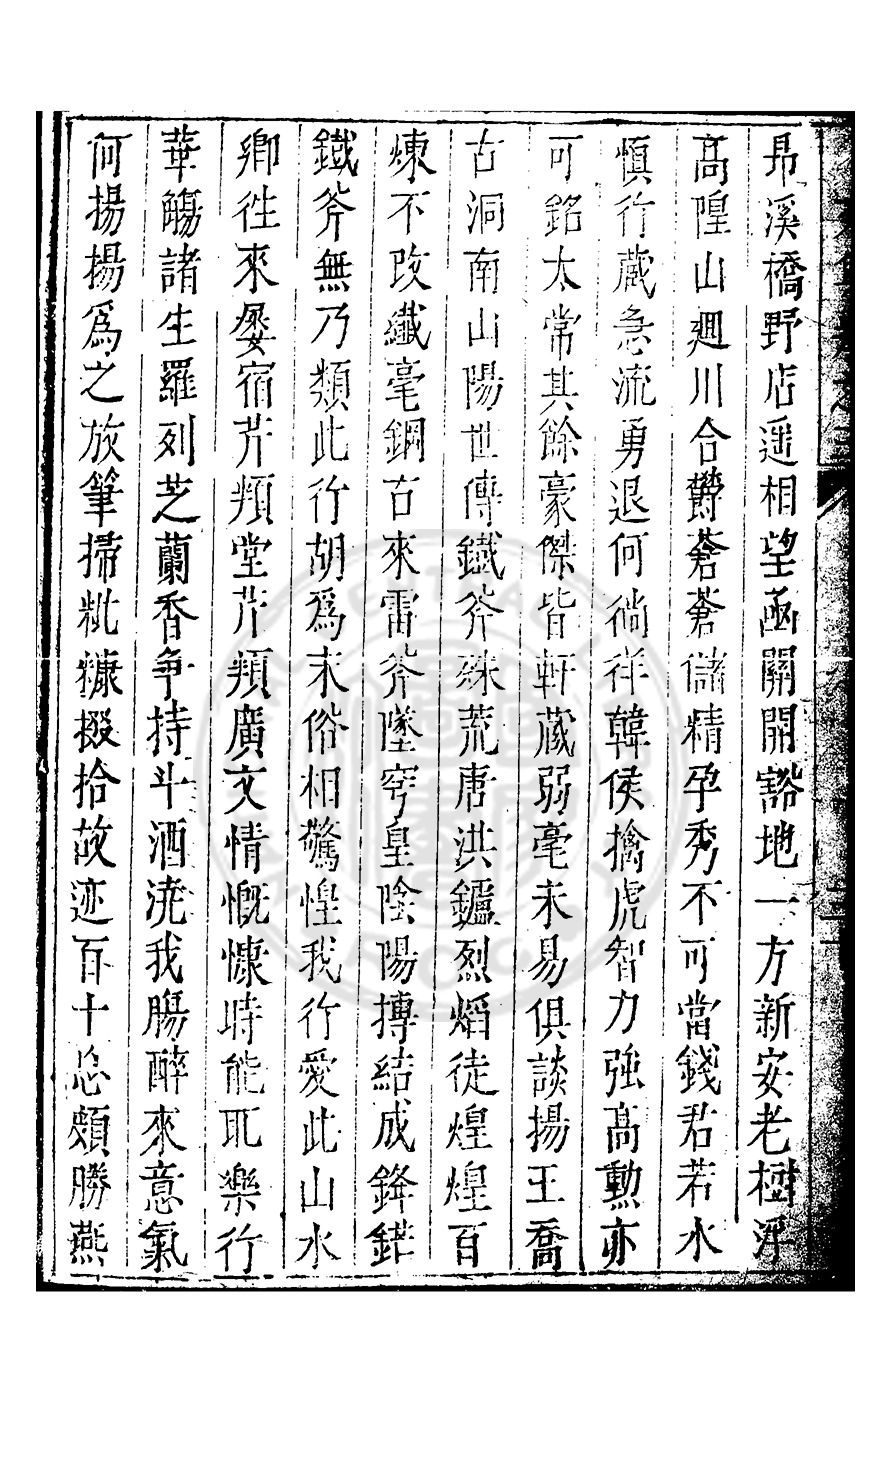 昻溪橋野店遥相望凾關開豁地一方新安老樹浮
髙隍山廻川合欝蒼蒼儲精孕秀不可當錢君若水
慎行蔵急流勇退何徜徉韓侯擒虎智力強髙勲亦
可銘太常其餘豪傑皆軒蔵弱毫未易俱談揚王喬
古洞南山陽世傳鐵斧殊荒唐洪鑪烈熖徒煌煌百
煉不改纎毫鋼古來雷斧墜穹皇陰陽摶結成鋒鋩
鐵斧無乃類此行胡爲末俗相驚惶我行愛此山水
鄉徃來屡宿芹頖堂芹頖廣文情慨慷時能耴樂行
華觴諸生羅列芝蘭香争持斗酒澆我腸醉來意氣
何揚揚爲之放筆掃粃糠掇拾故迹百十忘頗勝燕